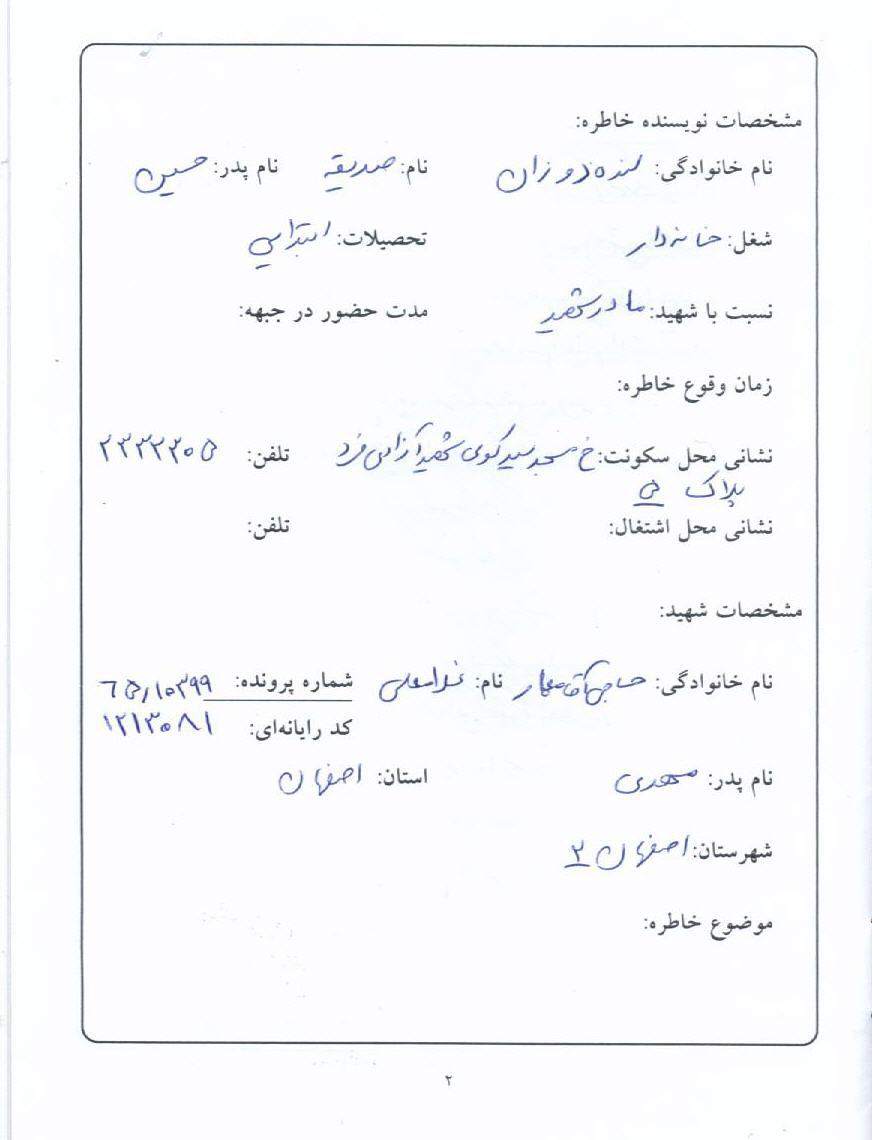 مشخصات نویسنده خاطره:
نام خانوادگی: دوزان نام: صدیقه نام پدر: حسین
شغل: خانه‌دار تحصیلات: ابتدایی
نسبت با شهید: مادر شهید مدت حضور در جبهه:
زمان وقوع خاطره:
نشانی محل سکونت: خ مسجد سید کوی شهید تلفن: ۲۳۳۲۳۰۵
پلاک ۵
نشانی محل اشتغال: تلفن:
مشخصات شهید:
نام خانوادگی: حاجی آقامعمار نام: غلامعلی شماره پرونده: ۶۵/۱۰۳۹۹
کد رایانه‌ای: ۱۲۱۳۰۸۱
نام پدر: مهدی استان: اصفهان
شهرستان: اصفهان ۲
موضوع خاطره:
۲